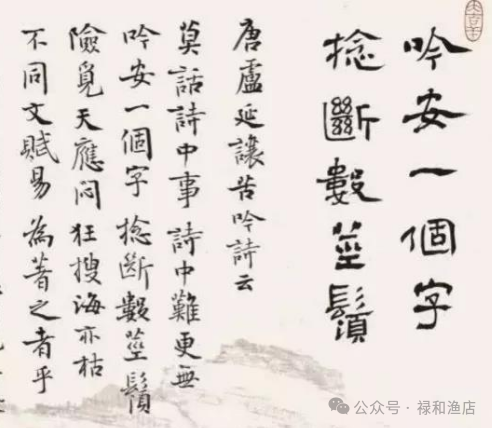 吟安一個字
捻斷數莖鬚
唐盧延讓苦吟詩云
莫話詩中事詩中難更無
吟安一個字捻斷數莖鬚
險覓天應悶狂搜海亦枯
不同文賦易為著之者乎
公众号·禄和渔店